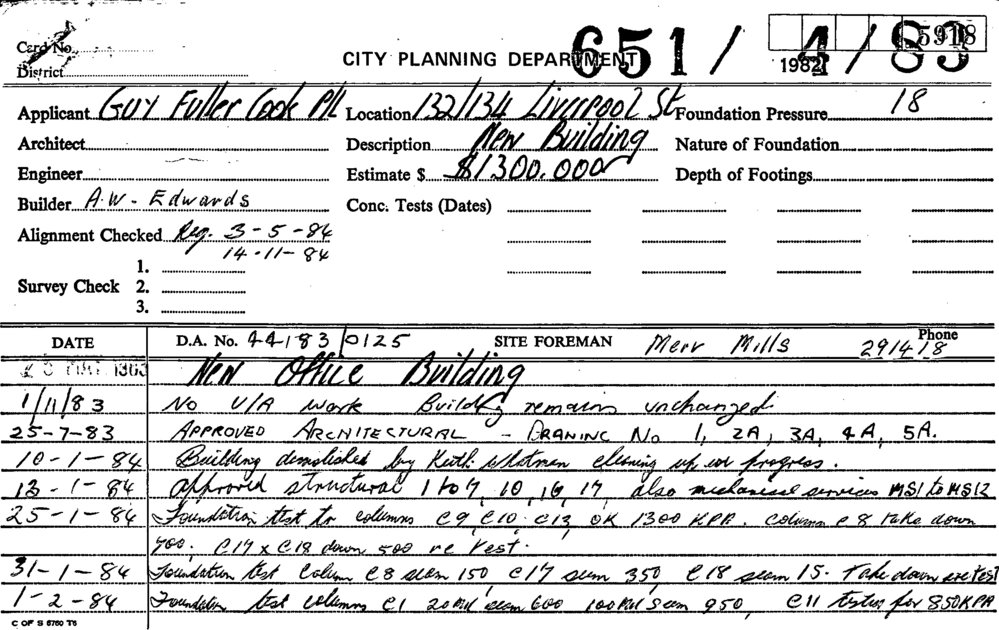 Card No.
5918
CITY PLANNING DEPARTMENT 651 / 4 / 83
1982
District
Applicant Guy Fuller Cook P/L Location 132/134 Liverpool St Foundation Pressure 18
Architect Description New Building Nature of Foundation
Engineer Estimate $ $1300,000 Depth of Footings
Builder A.W. Edwards Conc. Tests (Dates)
Alignment Checked Reg. 3-5-84
14-11-84
1.
Survey Check 2.
3.
DATE D.A. No. 44183/0125 SITE FOREMAN Merv Mills Phone 291418
New Office Building
1/11/83 No U/A work Building remains unchanged
25-7-83 APPROVED ARCHITECTURAL - DRANINC No 1, 2A, 3A, 4A, 5A.
10-1-84 Building demolished by Keith cleaning up in progress.
13-1-84 Approved structural 1 to 7, 10, 16, 17, also mechanical services MS1 to MS12
25-1-84 Foundation test to columns C9, C10, C13, OK 1300 KPA. column C8 take down
700. C17 x C18 down 500 re test.
31-1-84 Foundation test Column C8 seam 150 C17 seam 350, C18 seam 15. Take down
1-2-84 Foundation test columns C1 seam 600 seam 950, C11 for 850KPA
C OF S 6760 T6